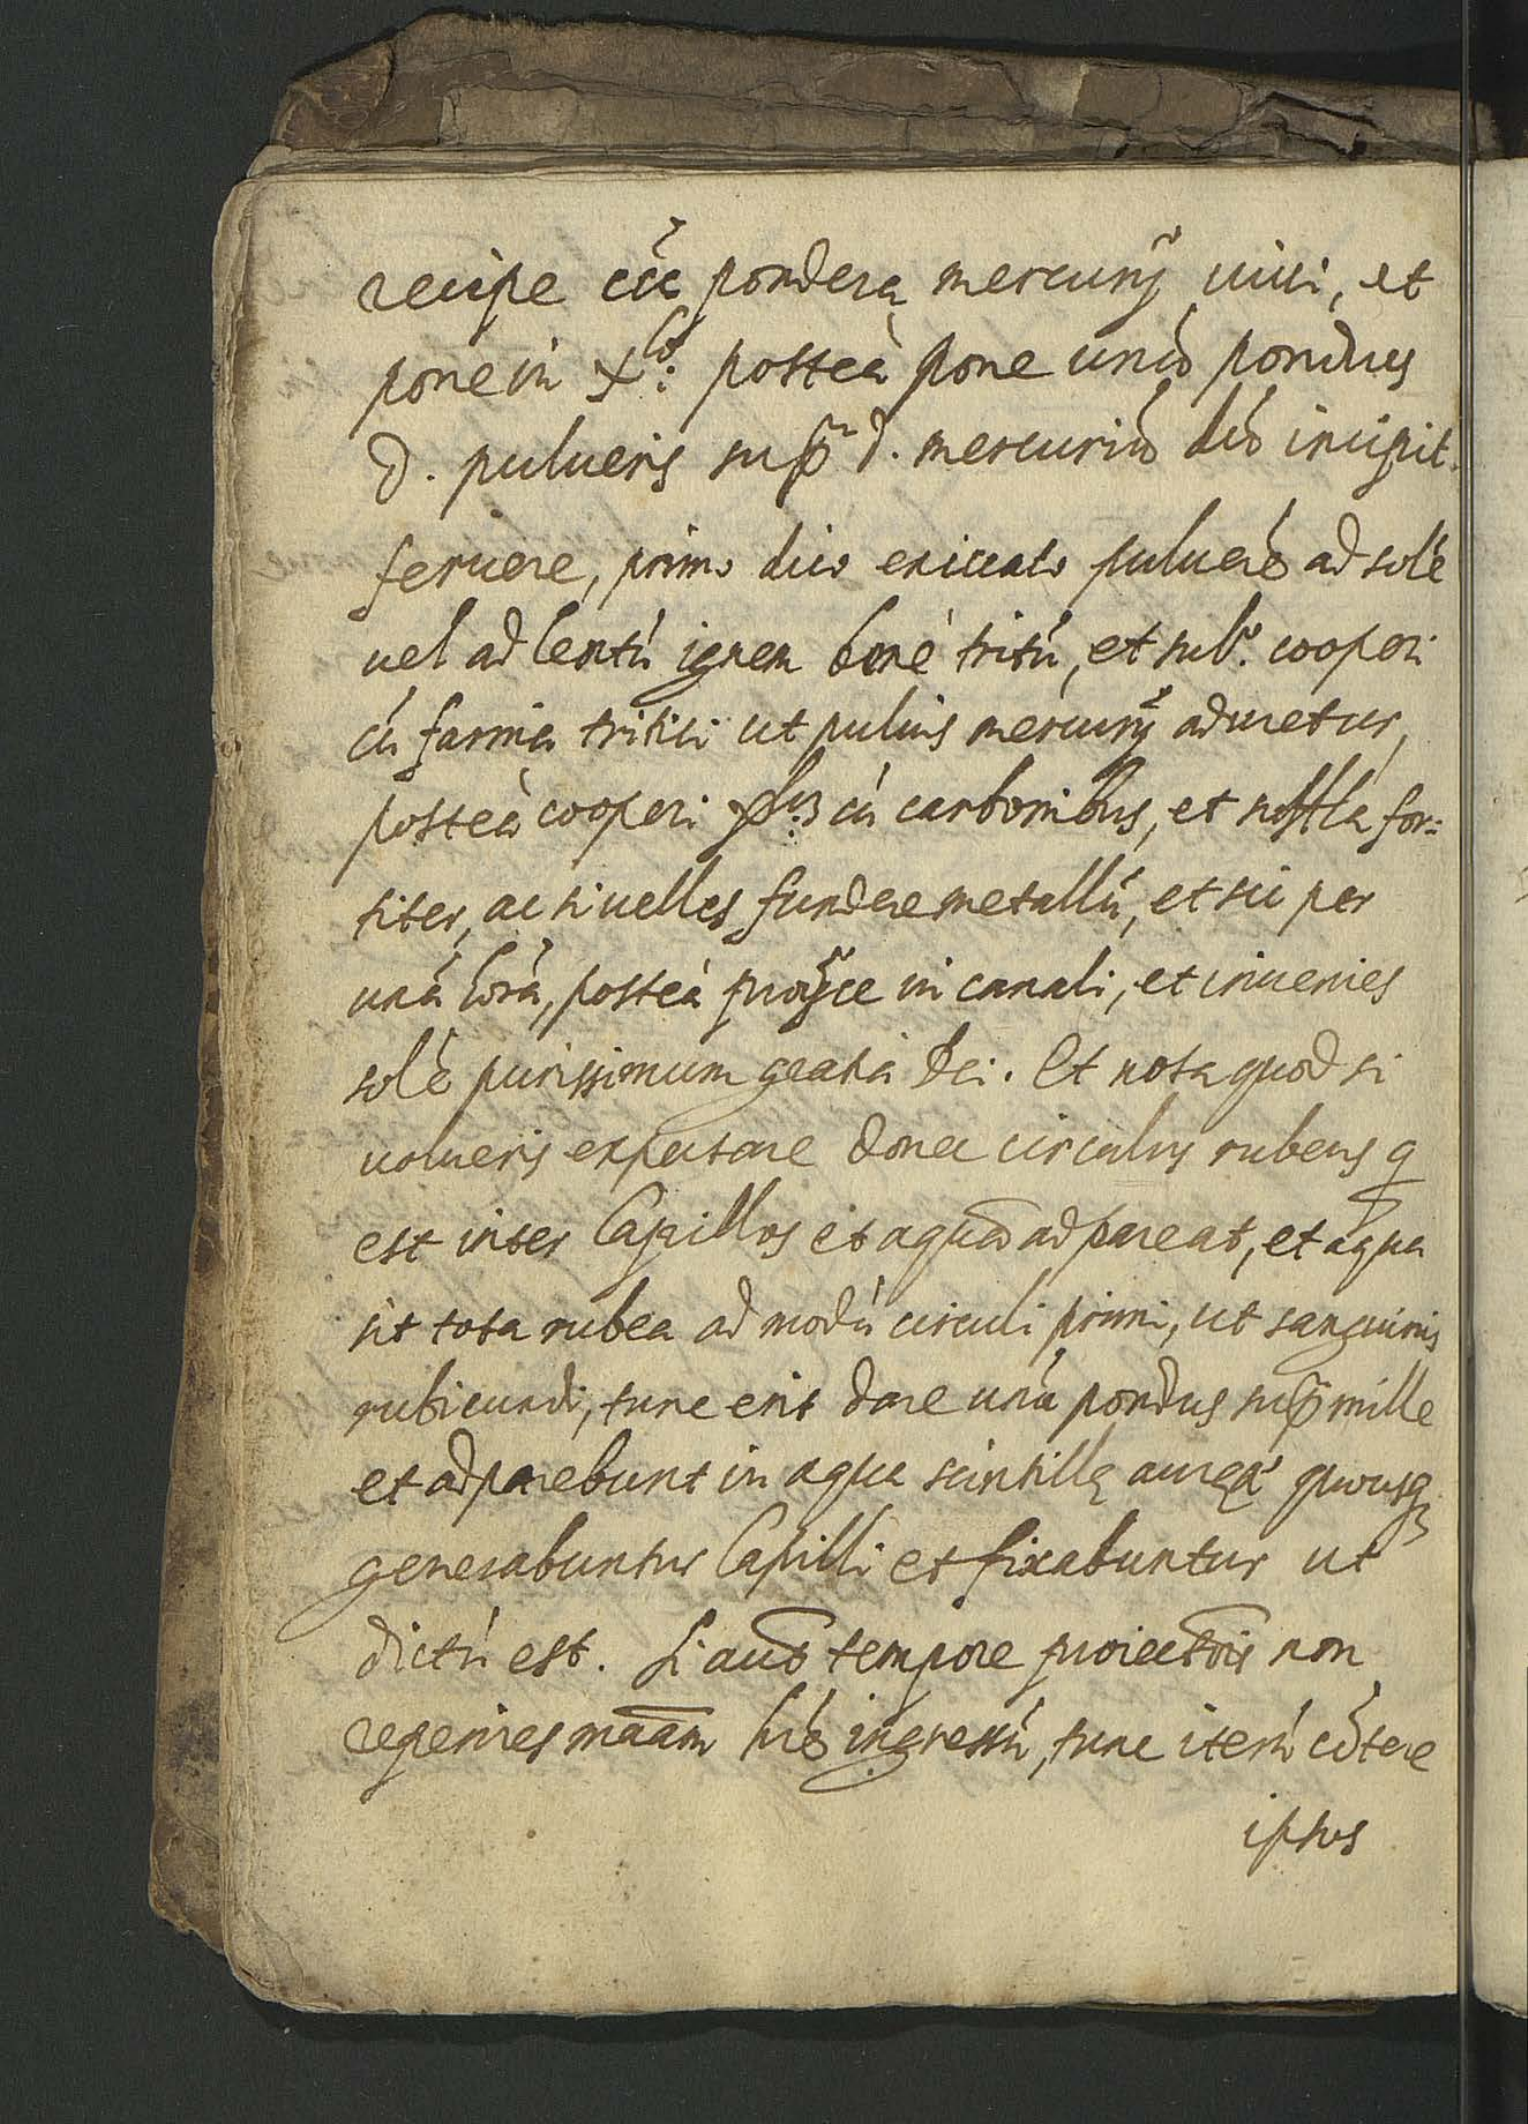 recipe ccc pondera mercurij uiui, et
pone in xlo: posteà pone unũ pondus
d. pulueris sup̃ d. mercuriũ dũ incipit
feruere, primo dico exiccato puluerẽ ad solẽ
uel ad lentũ ignem bonè tritũ, et subo. cooperi
cũ farina tritici ut puluis mercurij aduretur,
posteà cooperi cũ carbonibus, et suffla for=
titer, ac si uelles fundere metallũ, et sic per
unã horã, posteà proijce in canali, et inuenies
solẽ purissimum gratia Dei. Et nota quod si
uolueris expectare donec circulus rubeus q
est inter Capillos et aquã adpareat, et aqua
sit tota rubea ad modũ circuli primi, ut sanguinis
rubicundi, tunc erit dare unũ pondus sup̃ mille
et adparebunt in aqua scintillę aureę quousq
generabuntur Capilli et fixabuntur ut
dictũ est. Si aut̃ tempore proiectõis non
reperires maãm hrẽ ingressũ, tunc iterũ cõtere
ipsos